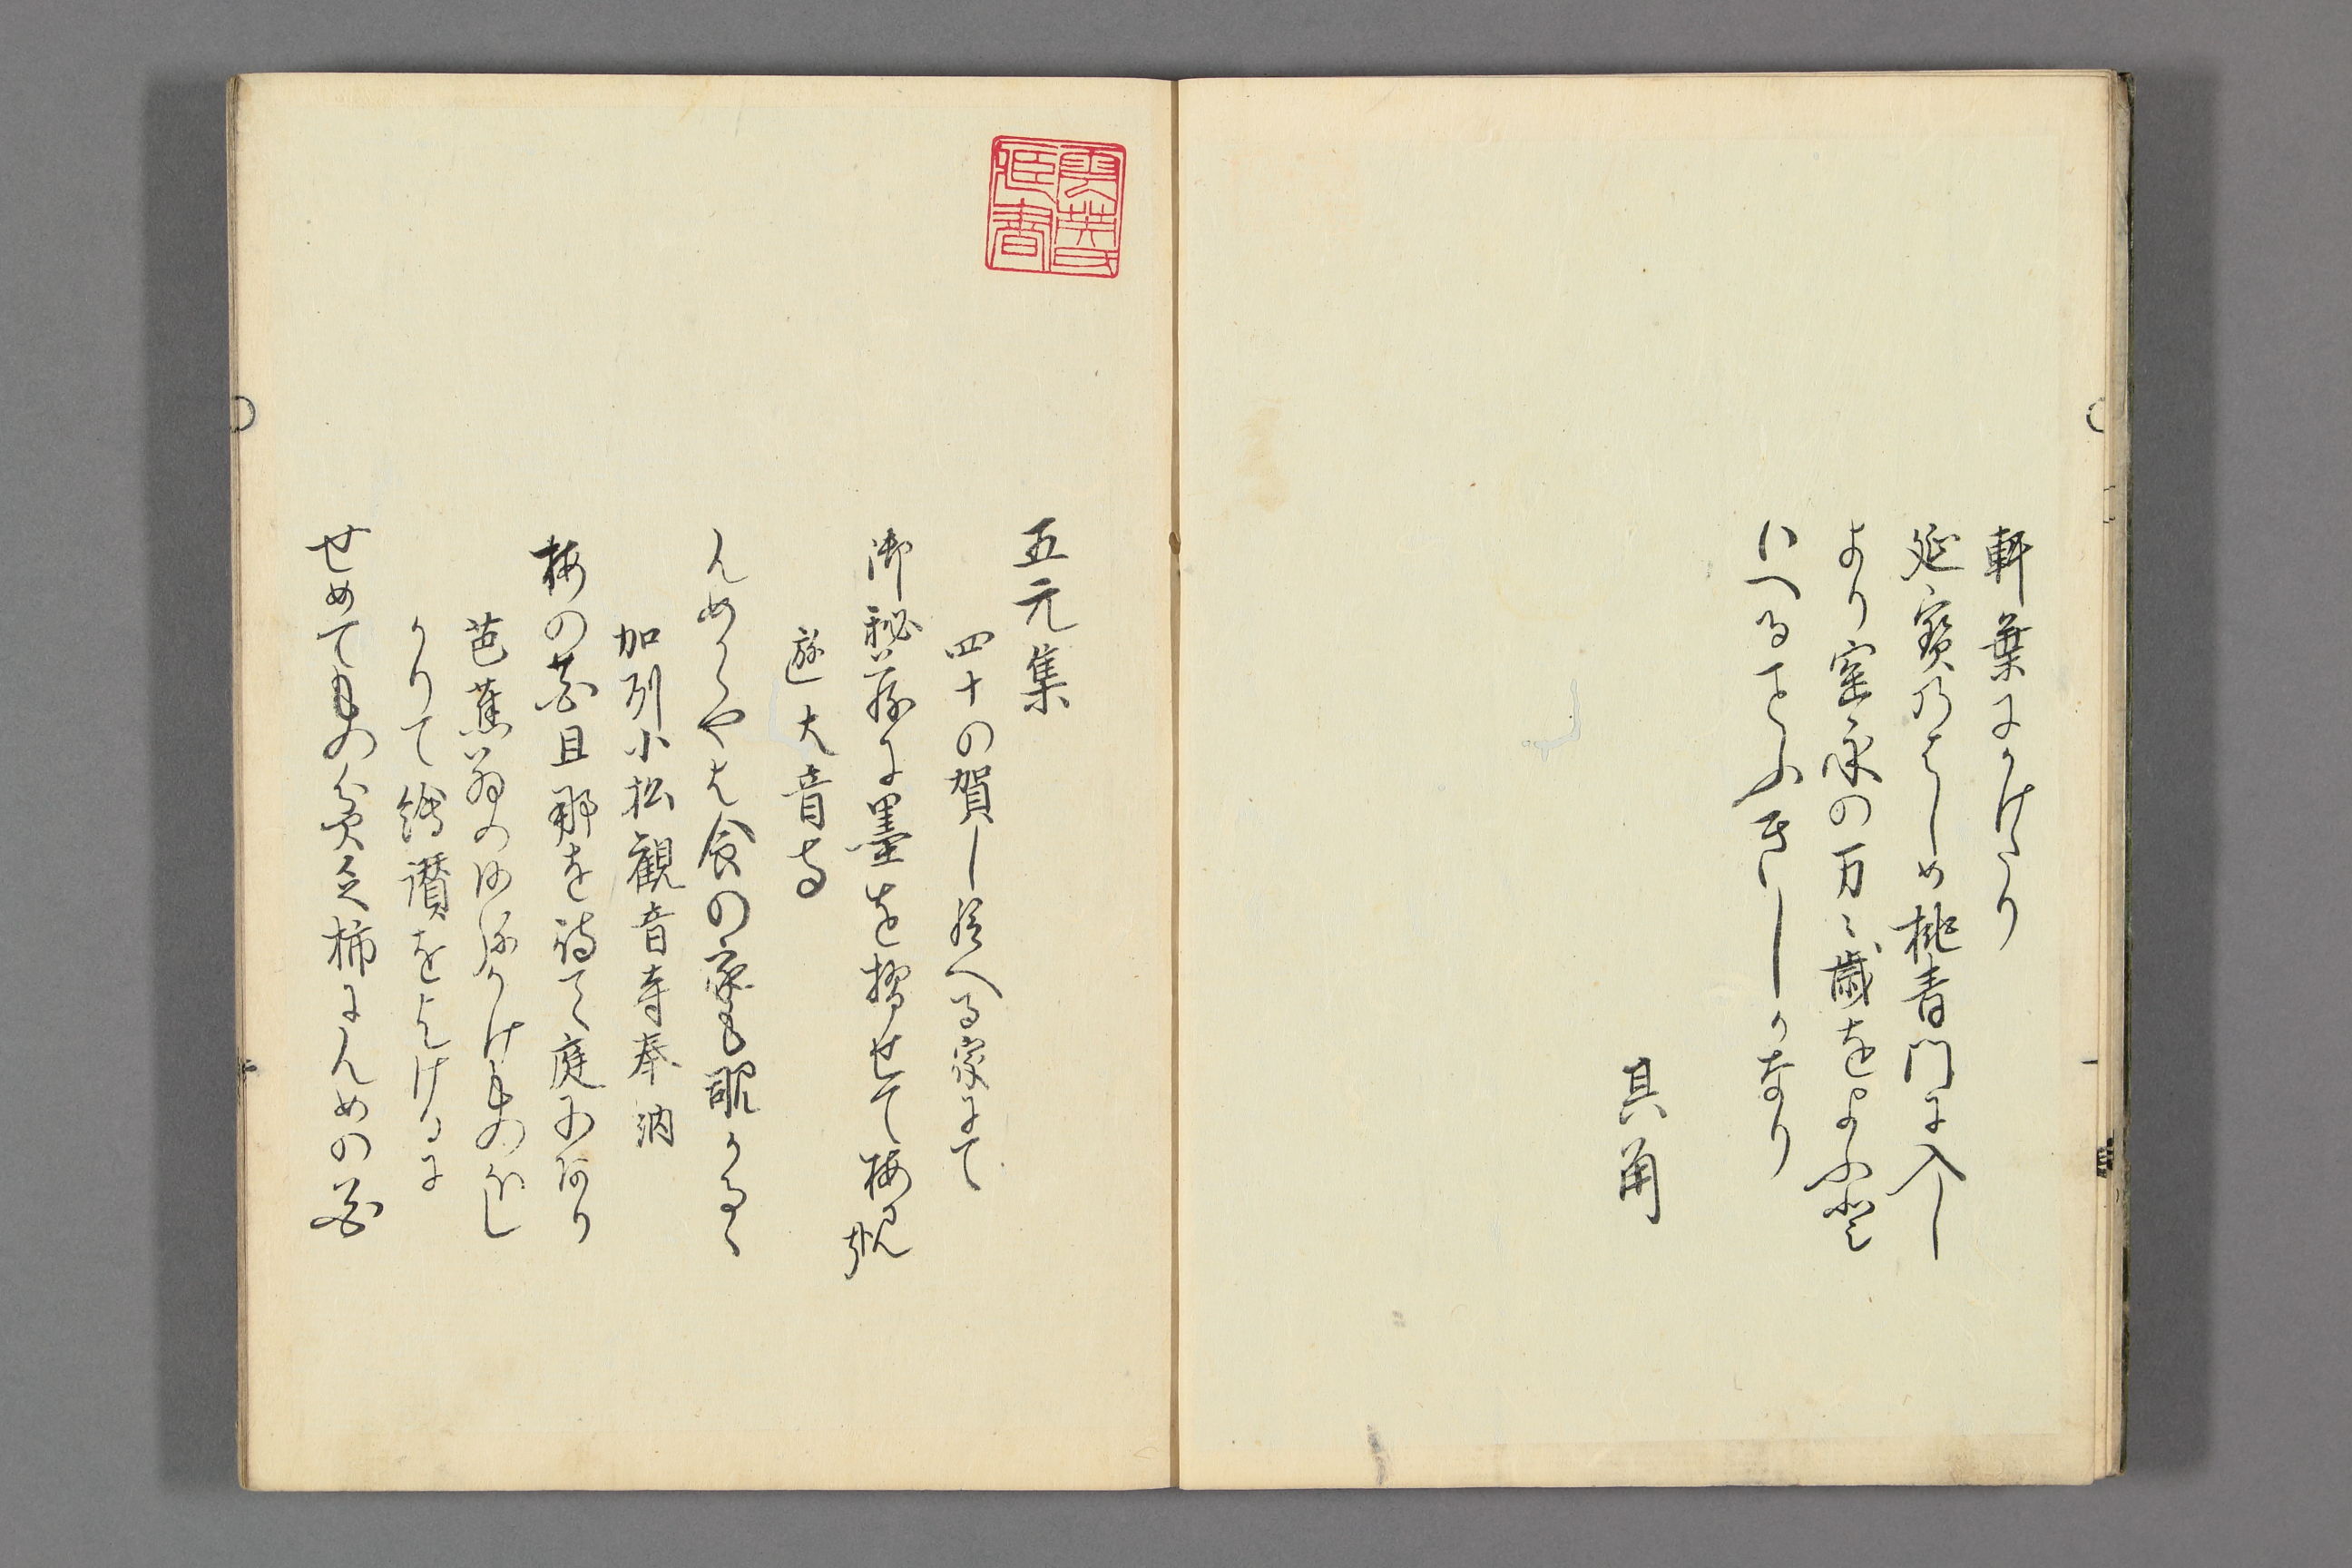 軒葉にかけたり
延寳乃はしめ桃青門に入し
より室永の万々歳をよふ聲と
いへることふきしかなり
其角
五元集
四十の賀し給へる家にて
御秘蔵に墨を摺せて梅見哉
遊大音寺
んめかゝや乞食の家も覗かるゝ
加列小松観音寺奉納
梅の花且那を待て庭にあり
芭蕉翁の
かりて繪讃をよけるに
せめての貧乏柿にんめの花
雲英蔵書